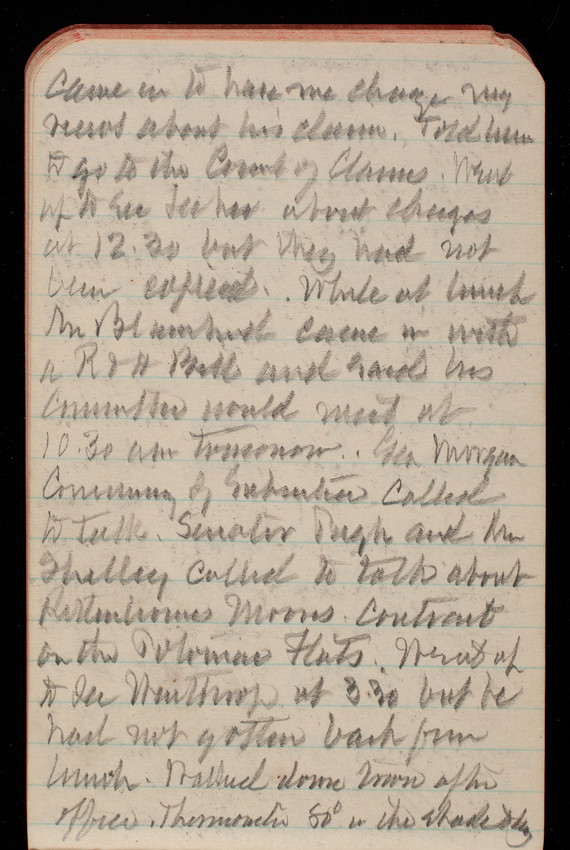 came in to have me change my
views about his claim. Told him
to go to the Court of Claims. Went
up to see about charges
at 12.30 but they had not
been copied. While at lunch
Mr Blanchard came in with
a R & H Bill and said his
Committee would meet at
10.30 am tomorrow. Gen Morgan
Commissary of Subsistence called
to talk. Senator Pugh and Mr
Shelley called to talk about
Rittenhouse Moores Contract
on the Potomac Flats. Went up
to see Winthrop at 3.30 but he
had not gotten back from
lunch. Walked down town after
office. Thermometer 80° in the shade to day